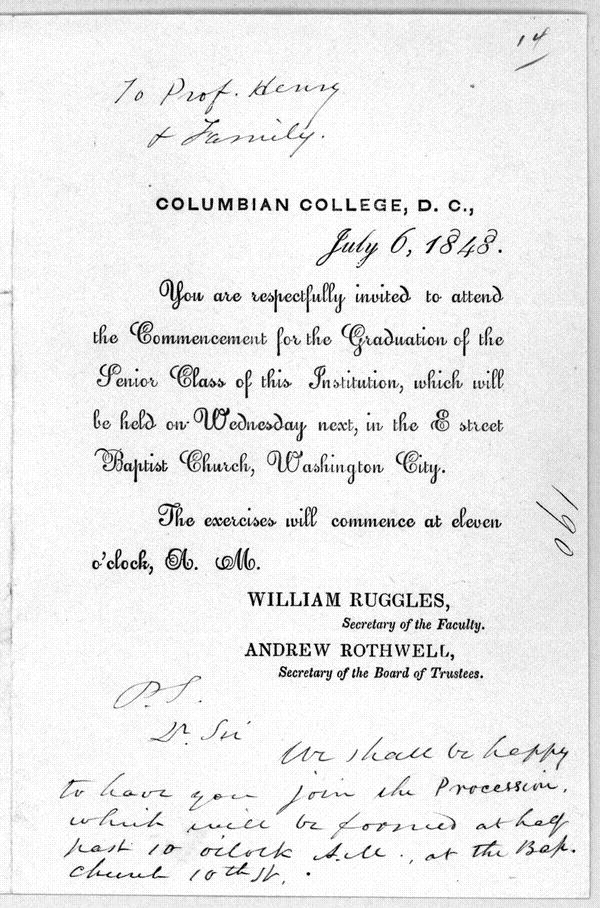 14
To Prof. Henry
& Family.
COLUMBIAN COLLEGE, D. C.,
July 6, 1848.
You are respectfully invited to attend
the Commencement for the Graduation of the
Senior Class of this Institution, which will
be held on Wednesday next, in the E street
Baptist Church, Washington City.
The exercises will commence at eleven
o'clock, A. M.
190
WILLIAM RUGGLES,
Secretary of the Faculty.
ANDREW ROTHWELL,
Secretary of the Board of Trustees.
P.S.
Dr. Sir
We shall be happy
to have you join the Procession,
which will be formed at half
past 10 o'clock A.M., at the Bap.
church 10th St.